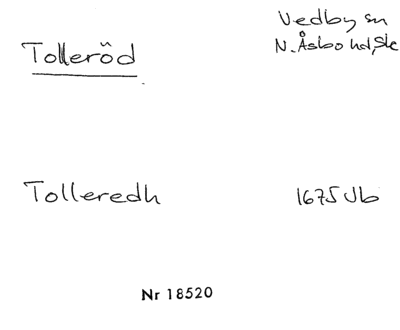 Tolleröd
Vedby sn
N. Åsbo hd, Sk
Tolleredh
1675 Jb
Nr 18520